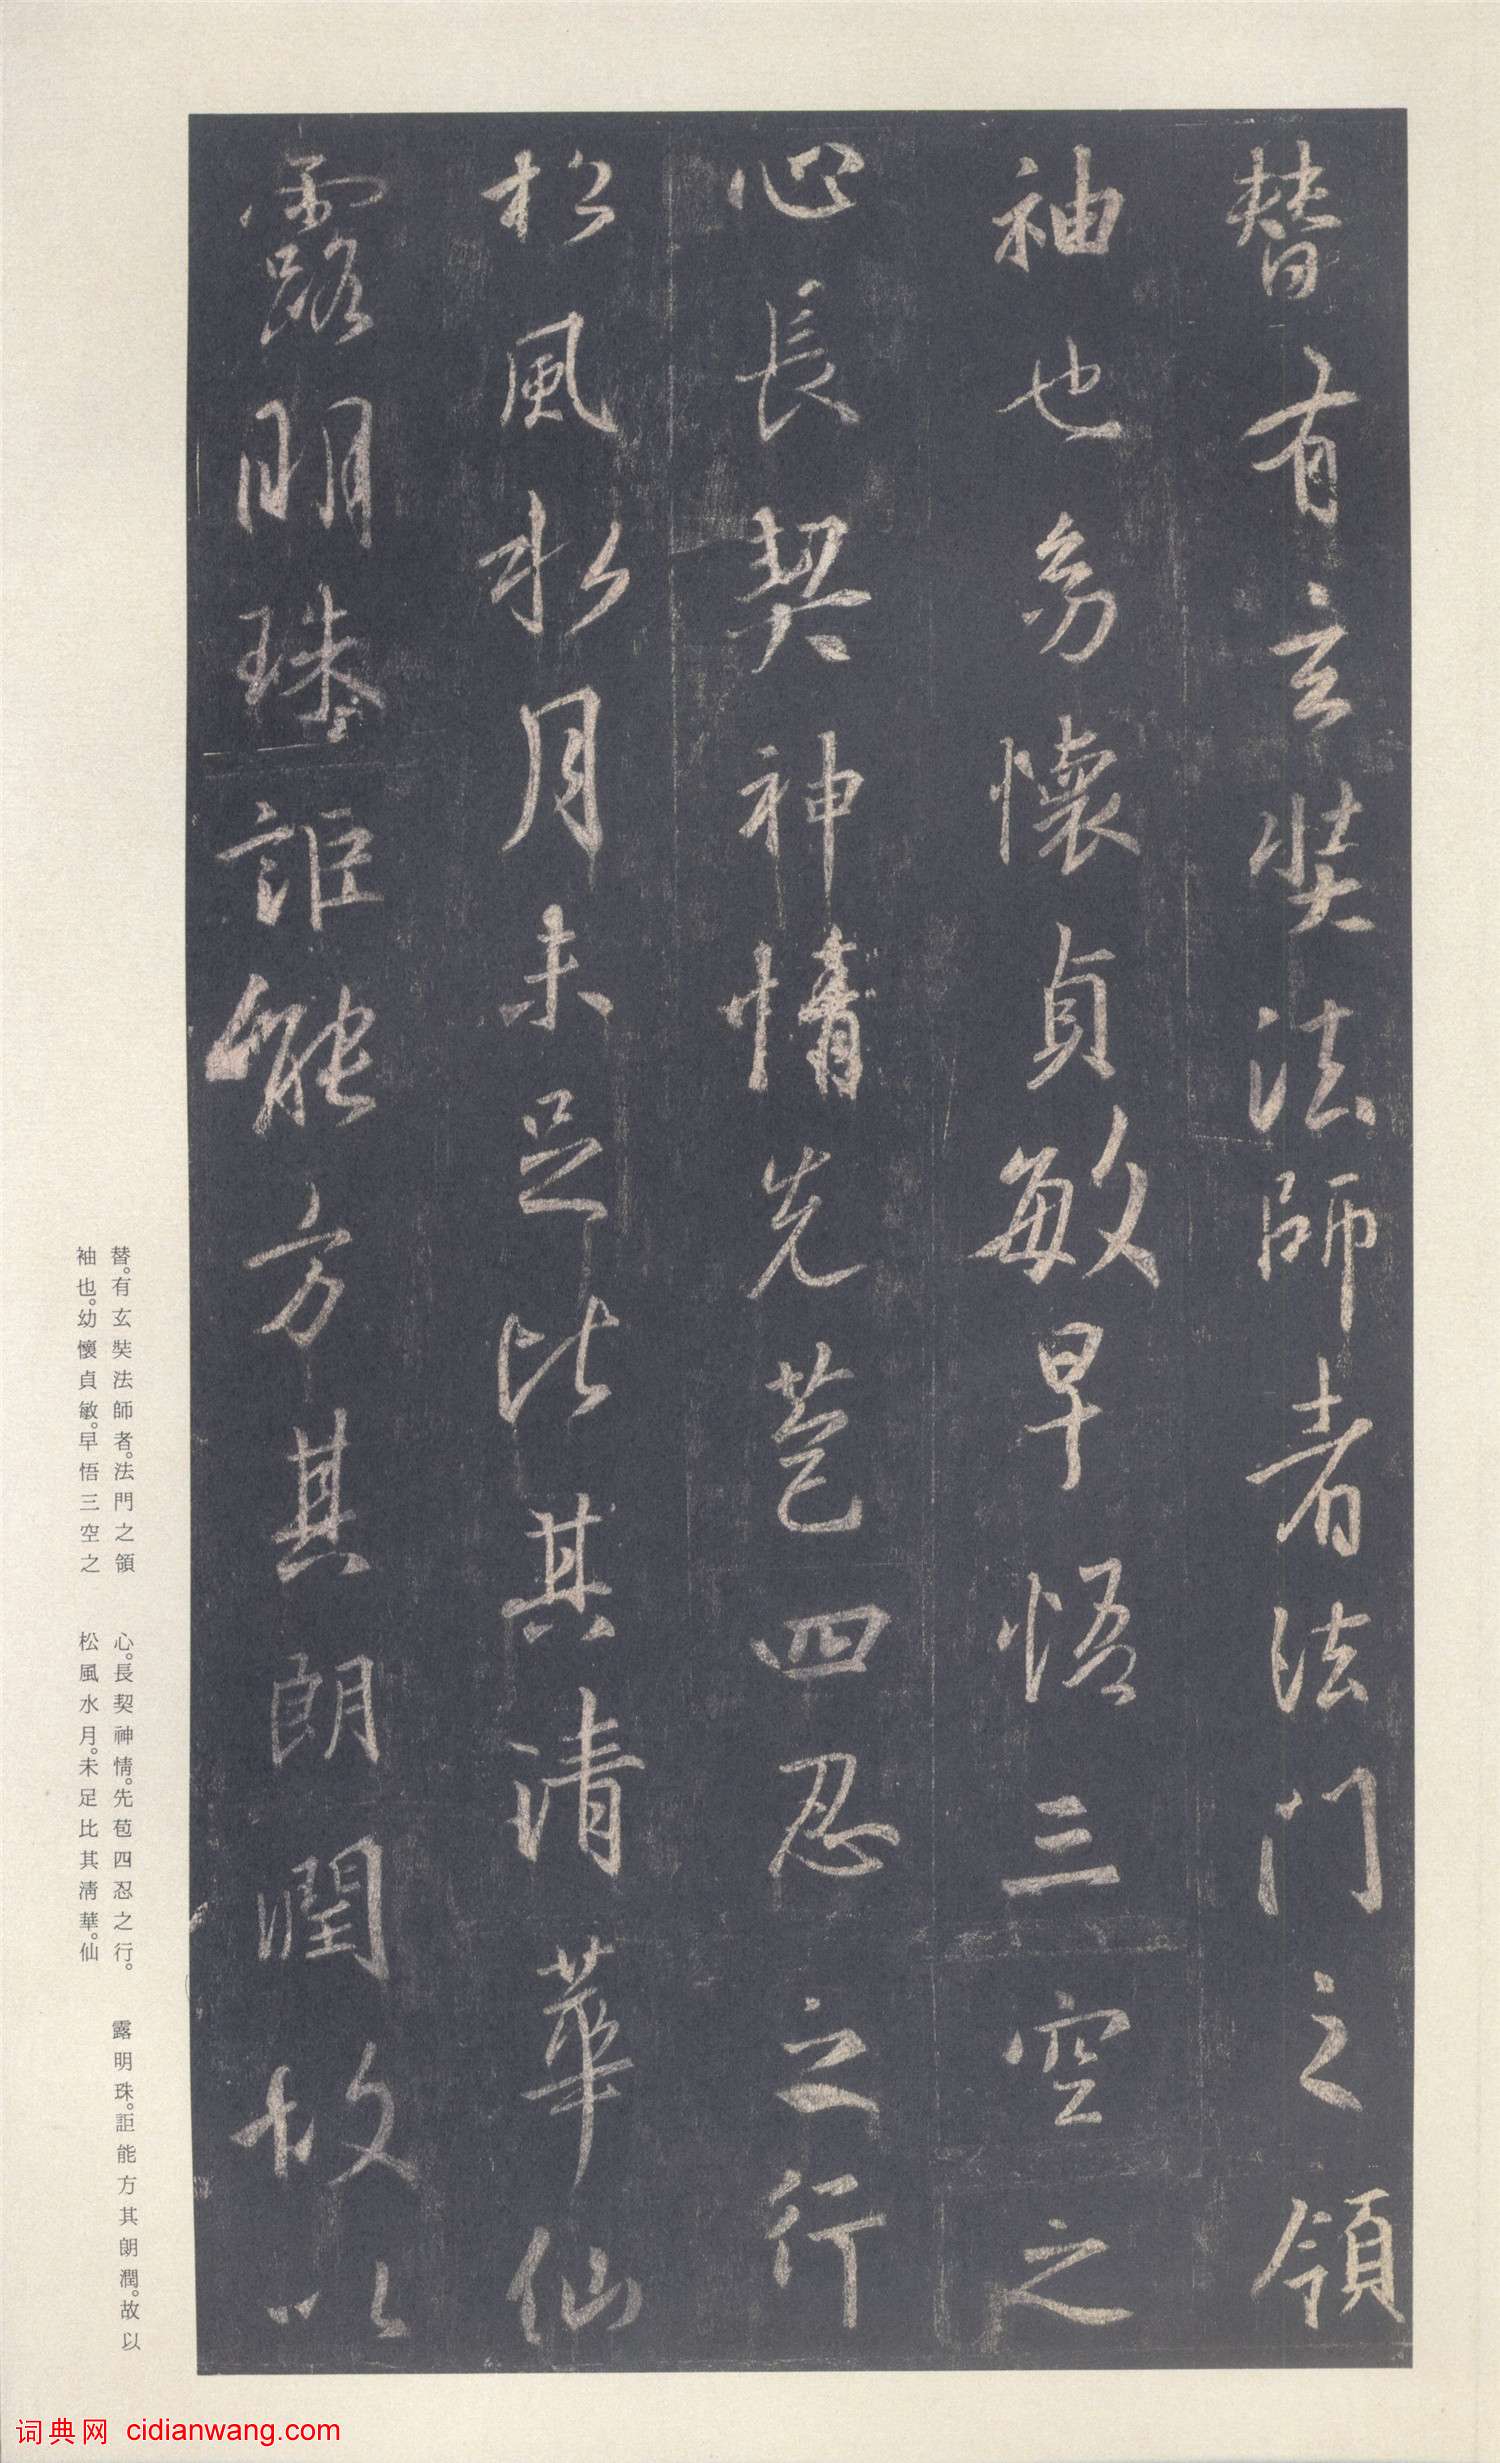 替有玄奘法師者法門之領
袖也幼懷貞敏早悟三空之
心長契神情先苞四忍之行
松風水月未足比其清華仙
露明珠詎能方其朗潤故以
替。有玄奘法師者。法門之領
袖也。幼懷貞敏。早悟三空之
心。長契神情。先苞四忍之行。
松風水月。未足比其清華。仙
露明珠。詎能方其朗潤。故以
词典网 cidianwang.com